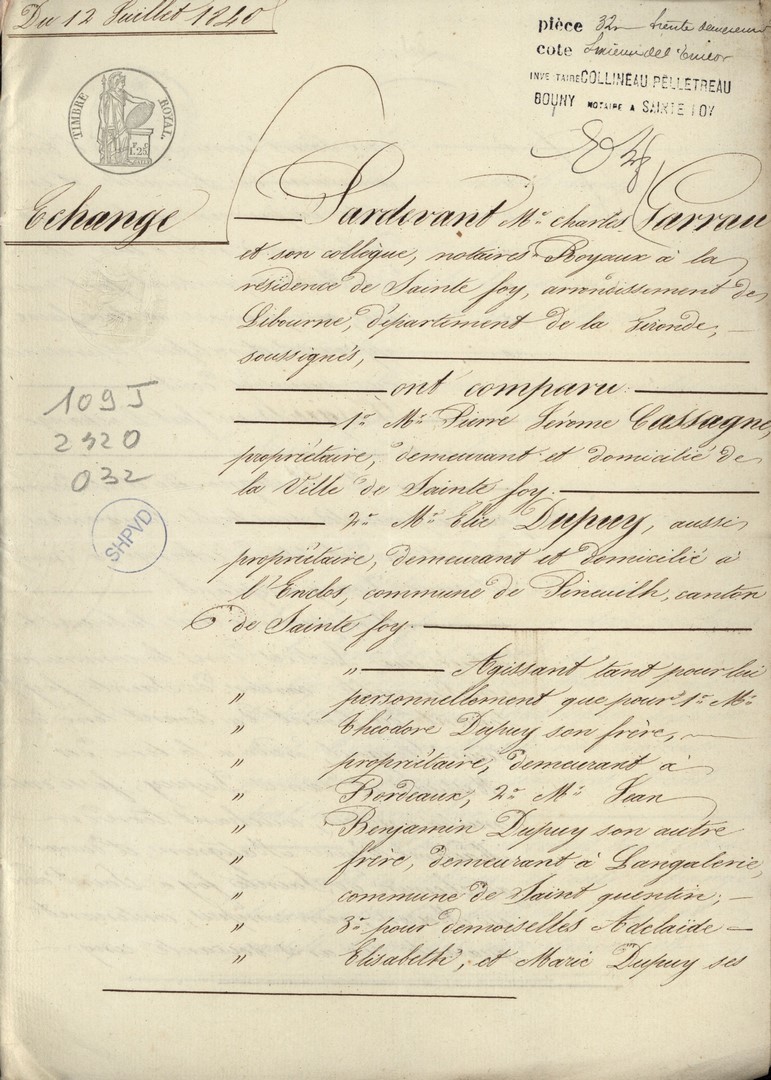 Du 12 Juillet 1840
pièce 32
cote
INVE TAIRE COLLINEAU PELLETREAU
BOUNY NOTAIRE A SAINTE FOY
TIMBRE ROYAL
1.25
Echange
Pardevant Me. Charles Garrau
et son collègue, notaires Royaux à la
résidence de Sainte foy, arrondissement de
Libourne, département de la Gironde,
soussignés,
ont comparu
1o. Mr. Pierre Jérome Cassagne,
propriétaire, demeurant et domicilié de
la Ville de Sainte foy.
2o. Mr. Elie Dupuy, aussi
propriétaire, demeurant et domicilié à
l'Enclos, commune de Pineuilh, canton
de Sainte foy.
" Agissant tant pour lui
" personnellement que pour 1o. Mr.
" Théodore Dupuy son frère,
" propriétaire, demeurant à
" Bordeaux, 2o. Mr. Jean
" Benjamin Dupuy son autre
" frère, demeurant à Langalerie,
" commune de Saint quentin;
" 3o. pour demoiselles Adelaïde
" Elisabeth, et Marie Dupuy ses
109 J
2320
032
SHPVD